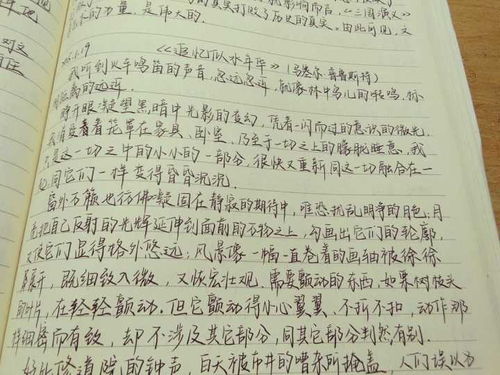 的真实打败了历史的真实。由此可见,文
水的力量,是伟大的。
1.19 《追忆似水年华》(马塞尔·普鲁斯特)
我听到火车鸣笛的声音,忽远忽近,就像林中鸟儿的转鸣,标
距离的远近。
睁开眼凝望黑暗中光影的变幻,凭着一闪而过的意识的微光,
着花罩在家具、卧室,乃至于一切之上的朦胧睡意,我
是这一切之中的小小的一部分,很快又重新同这一切融合在一
起,同它们一样变得昏昏沉沉。
窗外万籁也仿佛凝固在静寂的期待中,唯恐扰乱明净的月色;月
色把自己反射的光辉延伸到面前的万物之上,勾画出它们的轮廓,
又使它们显得格外悠远;风景像一幅一直卷着的画轴被徐徐
展开,既细致入微,又恢宏壮观。需要颤动的东西,如果树枝头
的叶片,在轻轻颤动。但它颤动得小心翼翼、不折不扣,动作那
样细密而有致,却不涉及其它部分,同其它部分判然有别。
好比修道院的钟声,白天被市井的嘈杂所掩盖,人们误以为